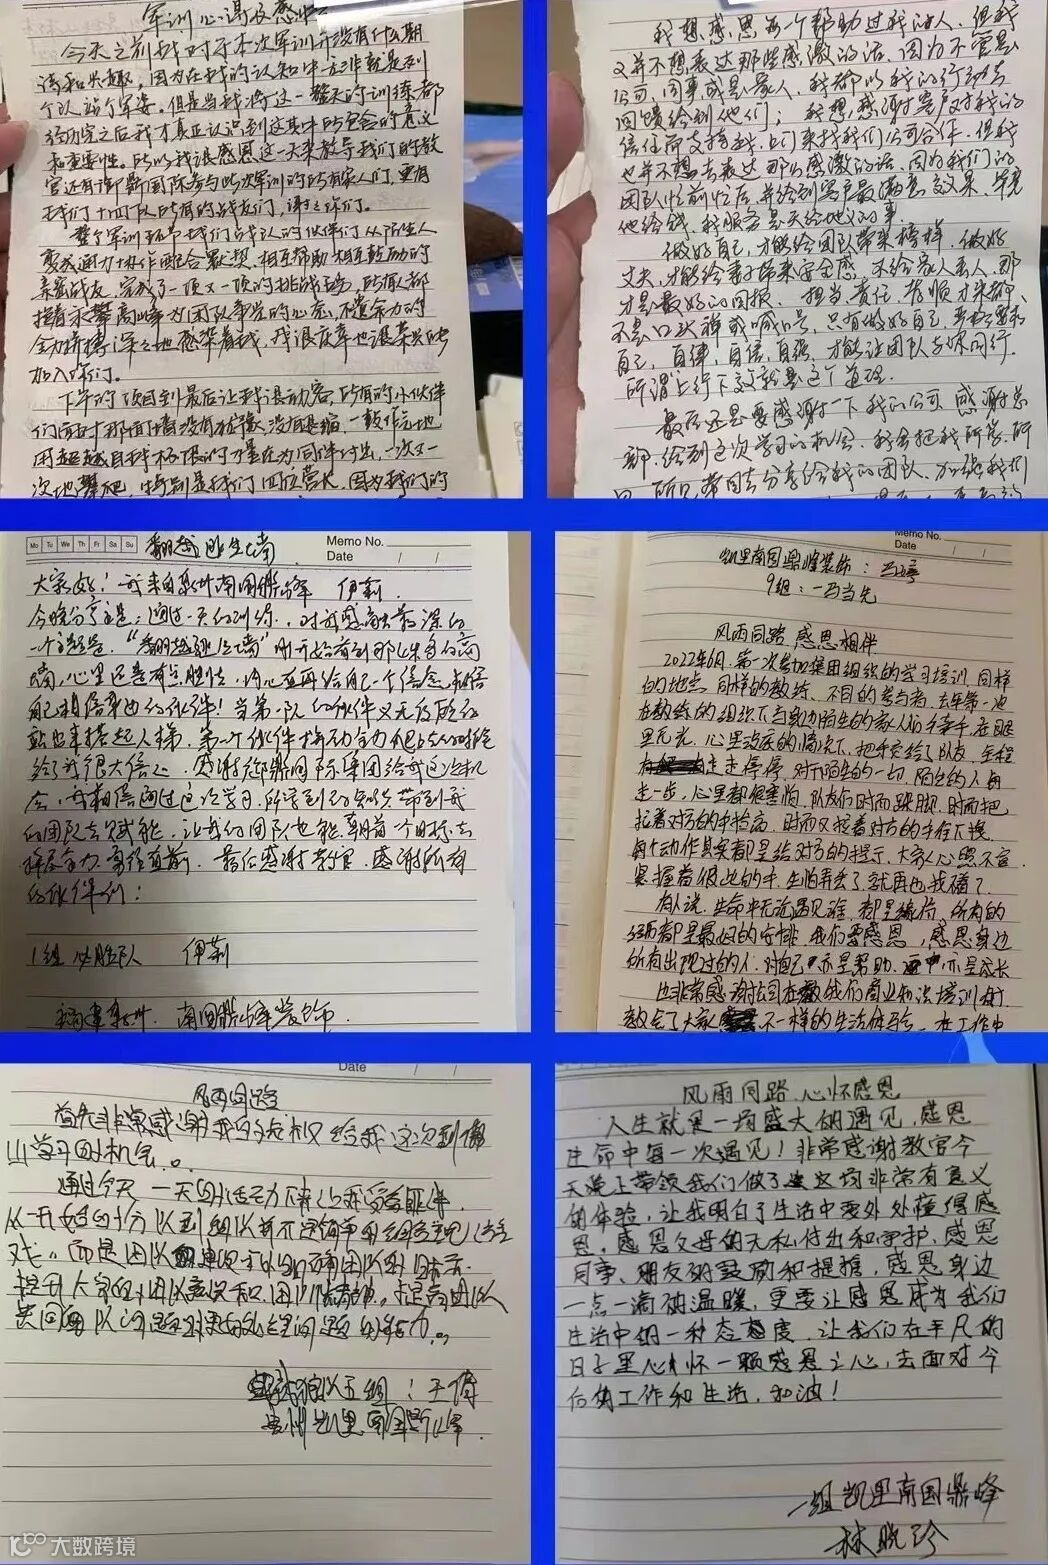 军训心得及感悟
今天之前我对于本次军训并没有什么期
待和兴趣，因为在我的认知中无非就是列
个队站个军姿。但是当我将这一整天的训练都
经历完之后我才真正认识到这其中所包含的意义
和重要性。所以我很感恩这一天来教导我们的教
官还有鼎国际参与此次军训的所有家人们，更有
我们十四队所有的战友们，谢谢你们。
整个军训环节我们战队的伙伴们从陌生人
变成通力协作配合默契，相互帮助相互鼓励的
亲密战友，完成了一项又一项的挑战，所有人都
抱着永攀高峰为团队争光的心态，不遗余力的
全力拼搏深深地感染着我，我很庆幸也很荣兴能
加入你们。
下午的项目到最后让我很动容，所有的小伙伴
们面对那面墙没有犹豫没有退缩，一致
用超越自我极限的力量在为同伴付出，一次又一
次地攀爬，特别是我们四位营长，因为我们的
我想感恩每个帮助过我的人，但我
又并不想表达那些感激的话，因为不管是
公司，同事或是家人，我都以我的行动去
回馈给到他们；我想感谢客户对我的
信任而支持我，上门来找我们公司合作，但我
也并不想去表达那么感激的话，因为我们的
团队忙前忙后，并给到客户最满意效果，毕竟
他给钱，我服务是天经地义的事。
做好自己，才能给团队带来榜样，做好
丈夫，才能给妻子带来安全感，不给家人丢人，那
才是最好的回报，担当，责任，孝顺才来都
不是口头禅或喊口号，只有做好自己，严格要求
自己，自律，自信，自强，才能让团队与你同行，
所谓上行下效就是这个道理。
最后还是要感谢一下我的公司，感谢总
部，给到这次学习的机会，我会把我所学，所
所见带回去分享给我的团队，加强我们
Mo Tu We Th Fr Sa Su
翻越逃生墙
Memo No.
Date / /
大家好！我来自泉州南国鼎峰 伊莉
今晚分享主题：通过一天的训练，对我感触最深的
一个主题是，“翻越逃生墙”刚开始看到那么多的高
墙，心里还是有点胆怯，内心在再给自己一个信念相信
自己相信身边的伙伴！当第一队的伙伴义无反顾的
站出来搭起人梯，第一个伙伴拼尽全力爬上去的时候
给了我很大信心，感谢鼎国际集团给我这次机
会，我相信通过这次学习，所学到的知识带到我
的团队去赋能，让我的团队也能朝着一个目标去
拼尽全力，勇往直前，最后感谢教官，感谢所有
的伙伴们！
1组 必胜队 伊莉
福建泉州，南国鼎峰装饰
Memo No.
Date / /
凯里南国鼎峰装饰：
9组：一马当先
风雨同路 感恩相伴
2022年6月，第一次参加集团组织的学习培训，同样
的地点，同样的教练，不同的参与者，去年第一次
在教练的组织下与身边陌生的家人们手牵手，在眼
里无光，心里没底的情况下，把手交给了队友，全程
走走停停，对于陌生的一切，陌生的人每
走一步，心里都很害怕，队友们时而跺脚，时而把
拉着对方的手抬高，时而又拉着对方的手往下拽，
每个动作其实都是给对方的提示，大家心照不宣
紧握着彼此的手，生怕弄丢了就再也找不着了。
有人说，生命中无论遇见谁，都是缘份，所有的
经历都是最好的安排，我们要感恩，感恩身边
所有出现过的人，对自己亦是帮助，亦是成长
也非常感谢公司在教我们商业知识培训时，
教会了大家不一样的生活体验，在工作中
Date / /
风雨同路
首先非常感谢我公司授权给我这次到佛
山学习的机会。
通过今天一天的活动下来让我受益匪浅
戏。而是团队
提升大家的团队意识和团队精神，提高团队
共同团队问题的处理问题的能力。
战狼队五组：王倩
贵州凯里南国鼎峰
风雨同路、心怀感恩
人生就是一场盛大的遇见，感恩
生命中每一次遇见！非常感谢教官今
天晚上带领我们做了这场非常有意义
的体验，让我明白了生活中要处处懂得感
恩，感恩父母的无私付出和守护，感恩
同事、朋友的鼓励和提携，感恩身边
一点一滴的温暖，更要让感恩成为我们
生活中的一种态度，让我们在平凡的
日子里心怀一颗感恩之心，去面对今
后的工作和生活，加油！
一组凯里南国鼎峰
林晓珍
大数跨境